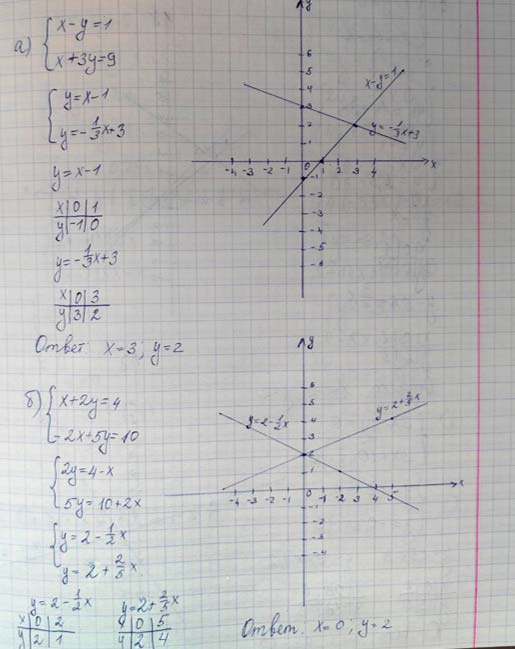 а) { x-y=1
x+3y=9
{ y=x-1
y=-1/3x+3
y=x-1
x|0|1
y|-1|0
y=-1/3x+3
x|0|3
y|3|2
Ответ x=3; y=2
y
6
5
4
3
2
1
-4 -3 -2 -1 0 1 2 3 4 x
-1
-2
-3
-4
-5
-6
x-y=1
y=-1/3x+3
б) { x+2y=4
-2x+5y=10
{ 2y=4-x
5y=10+2x
{ y=2-1/2x
y=2+2/5x
y=2-1/2x
x|0|2
y|2|1
y=2+2/5x
x|0|5
y|2|4
y
6
5
4
3
2
1
-4 -3 -2 -1 0 1 2 3 4 5 x
-1
-2
-3
-4
y=2-1/2x
y=2+2/5x
Ответ. x=0; y=2